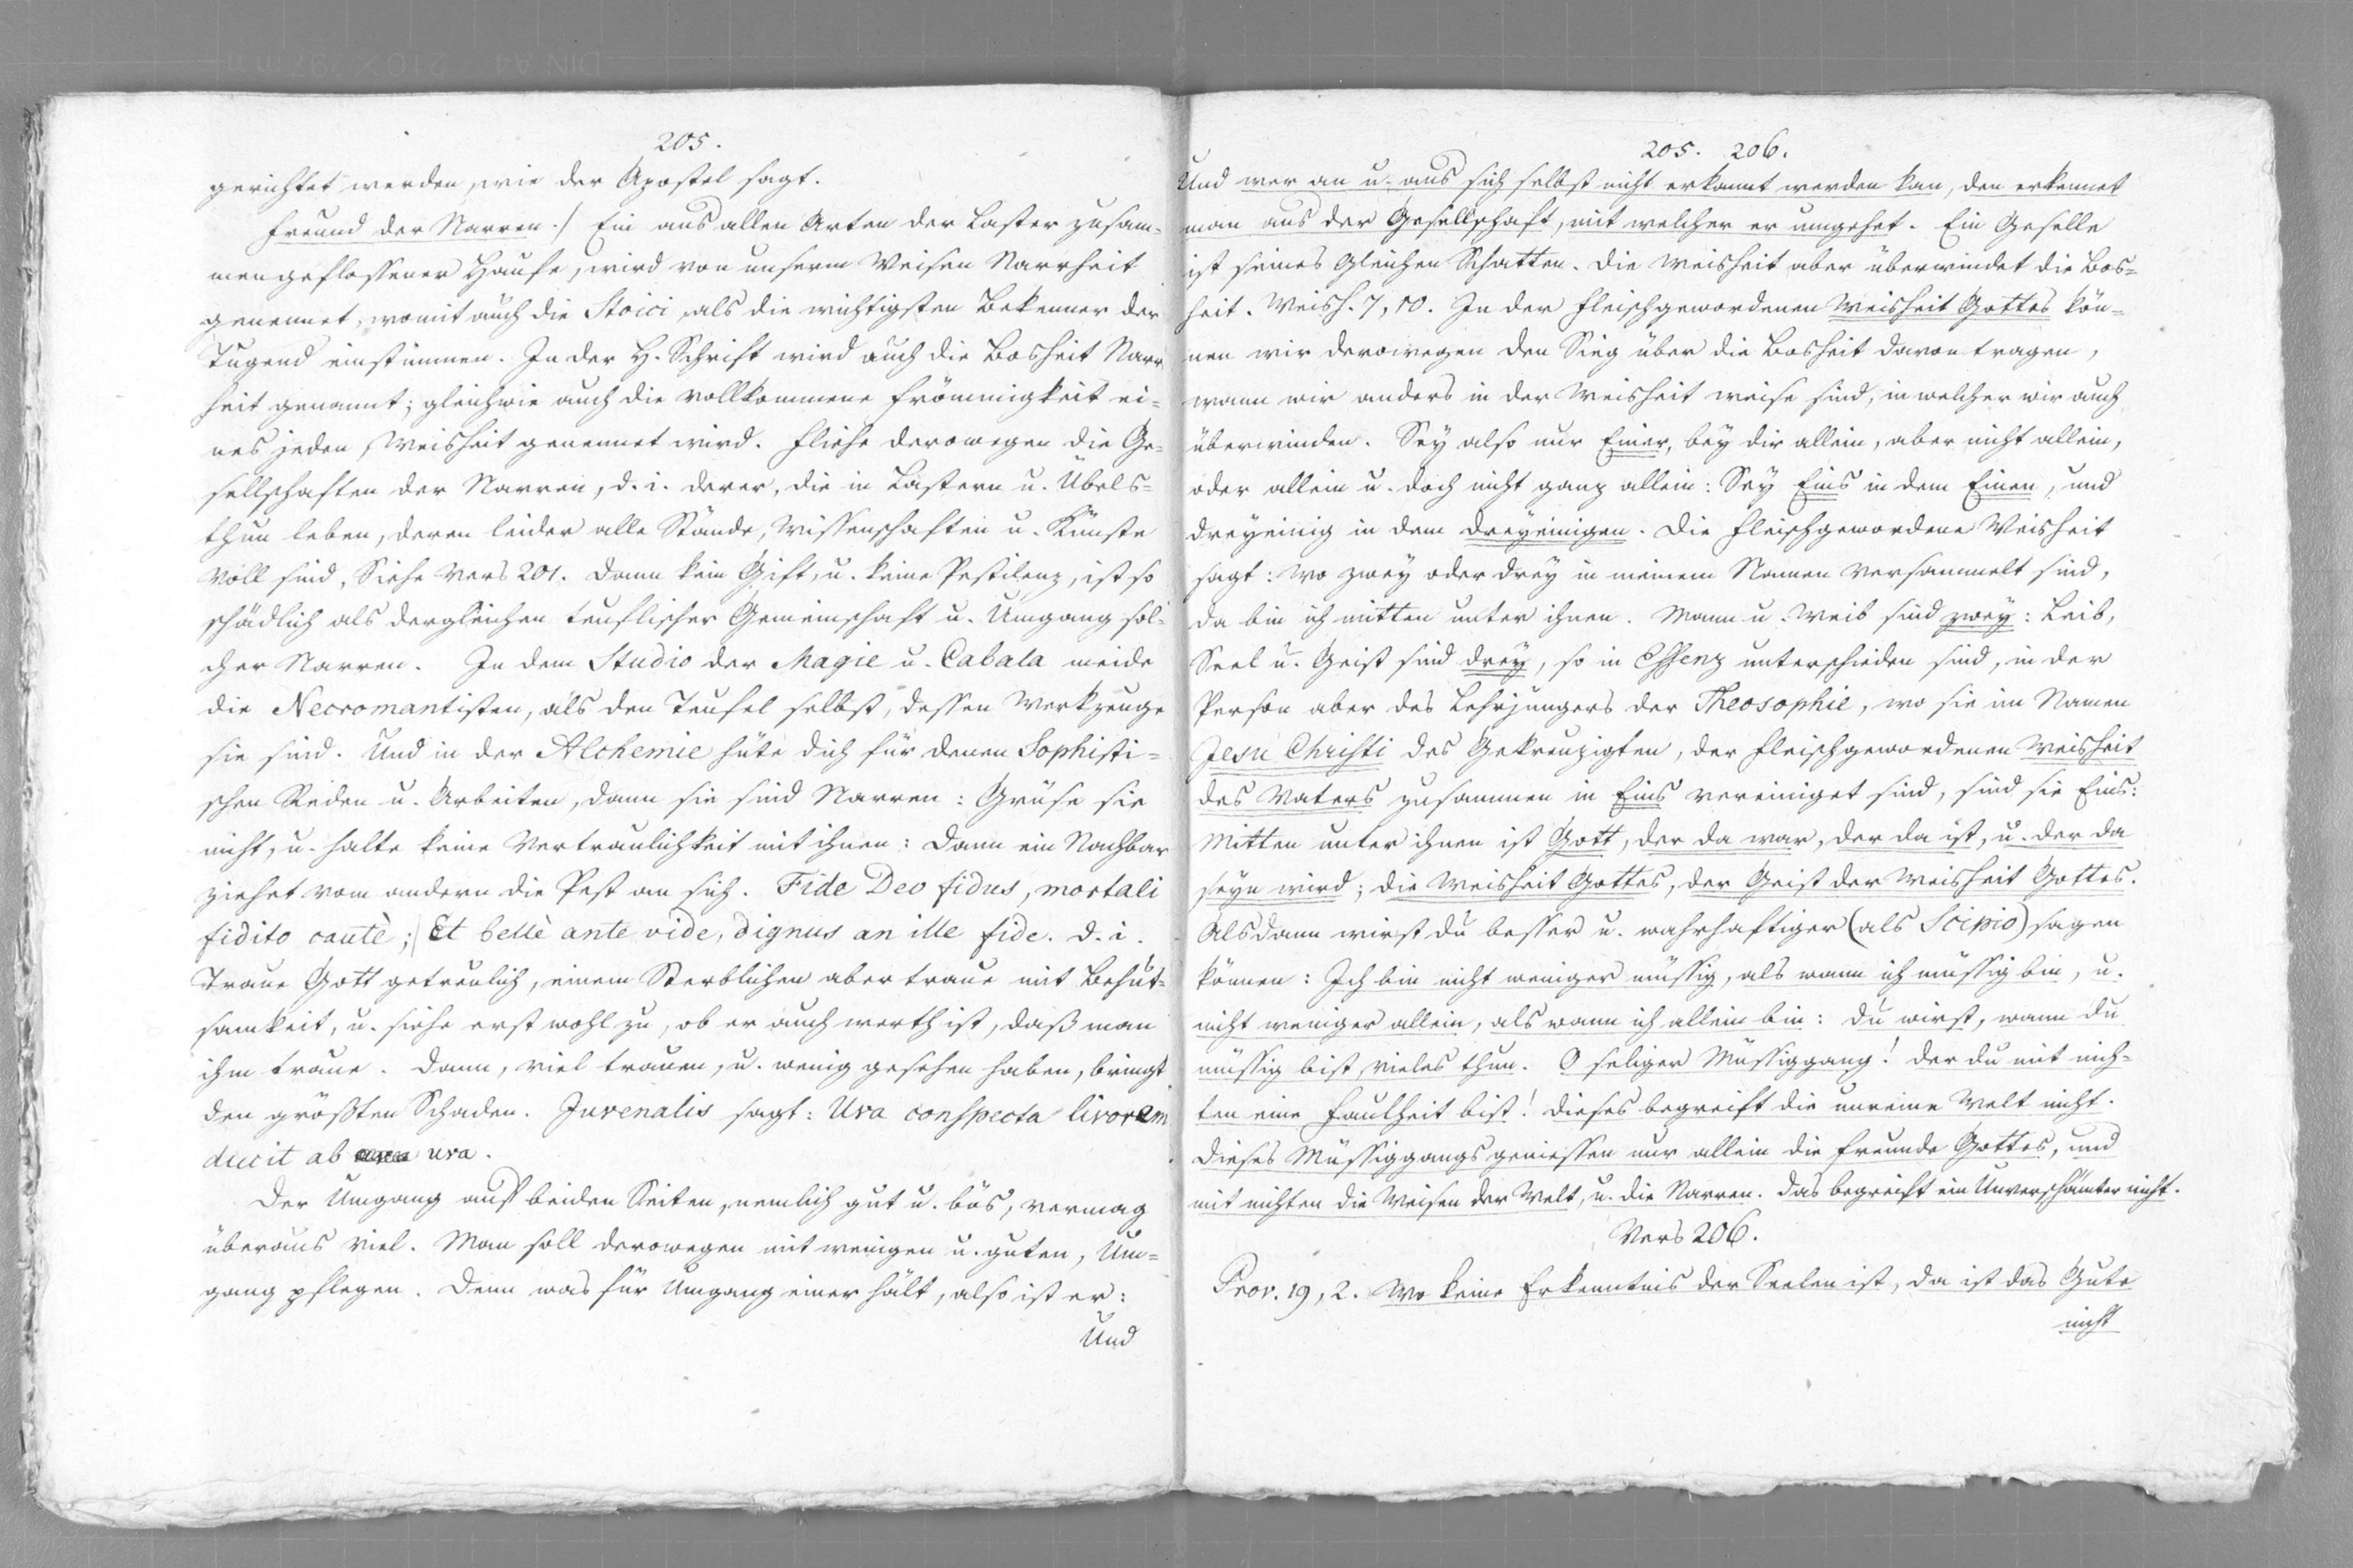 205.
gerichtet werden, wie der Apostel sagt.
Freund der Narren./ Ein aus allen Arten der Laster zusam=
mengeflossener Haufe, wird von unserm Weisen Narrheit
genennet, womit auch die Stoici, als die wichtigsten Bekenner der
Tugend einstimmen. In der H. Schrift wird auch die Bosheit Narr
heit genannt; gleichwie auch die vollkommene Frömmigkeit ei=
nes jeden, Weisheit genennet wird. Fliehe derowegen die Ge=
sellschaften der Narren, d. i. derer, die in Lastern u. Übels=
thun leben, deren leider alle Stände, Wissenschaften u. Künste
voll sind, Siehe Vers 201. Dann kein Gift, u. keine Pestilenz, ist so
schädlich als dergleichen teuflischer Gemeinschaft u. Umgang sol=
cher Narren. In dem Studio der Magie u. Cabala meide
die Necromantisten, als den Teufel selbst, dessen Werkzeuge
sie sind. Und in der Alchemie hüte dich für denen Sophisti=
schen Reden u. Arbeiten, dann sie sind Narren: Grüse sie
nicht, u. halte keine Vertraulichkeit mit ihnen: Dann ein Nachbar
ziehet vom andern die Pest an sich. Fide Deo fidus, mortali
fidito cautè; Et bellè ante vide, dignus an ille fide. d. i.
Traue Gott getreulich, einem Sterblichen aber traue mit Behut=
samkeit, u. siehe erst wohl zu, ob er auch werth ist, daß man
ihm traue. Dann, viel trauen, u. wenig gesehen haben, bringt
den größten Schaden. Juvenalis sagt: Uva conspecta livorem
ducit ab uva.
Der Umgang auf beiden Seiten, nemlich gut u. bös, vermag
überaus viel. Man soll derowegen mit wenigen u. guten, Um=
gang pflegen. Denn was für Umgang einer hält, also ist er:
Und
205. 206.
Und wer an u. aus sich selbst nicht erkannt werden kan, den erkennet
man aus der Gesellschaft, mit welcher er umgehet. Ein Geselle
ist seines Gleichen Schatten. Die Weisheit aber überwindet die Bos=
heit. Weish. 7, 10. In der fleischgewordenen Weisheit Gottes kön=
nen wir derowegen den Sieg über die Bosheit davon tragen,
wann wir anders in der Weisheit weise sind, in welcher wir auch
überwinden. Sey also nur Einer, bey dir allein, aber nicht allein,
oder allein u. doch nicht ganz allein: Sey Eins in dem Einen, und
dreyeinig in dem dreyeinigen. Die fleischgewordene Weisheit
sagt: wo zwey oder drey in meinem Namen versammelt sind,
da bin ich mitten unter ihnen. Mann u. Weib sind zwey: Leib,
Seel u. Geist sind drey, so in Essenz unterschieden sind, in der
Person aber des Lehrjüngers der Theosophie, wo sie im Namen
Jesu Christi des Gekreuzigten, der fleischgewordenen Weisheit
des Vaters zusammen in Eins vereiniget sind, sind sie Eins:
Mitten unter ihnen ist Gott, der da war, der da ist, u. der da
seyn wird; die Weisheit Gottes, der Geist der Weisheit Gottes.
Alsdann wirst du besser u. wahrhaftiger (als Scipio) sagen
können: Ich bin nicht weniger müssig, als wann ich müssig bin, u.
nicht weniger allein, als wann ich allein bin: du wirst, wann du
müssig bist, vieles thun. O seliger Müssiggang! der du mit nich=
ten eine Faulheit bist! Dieses begreift die unreine Welt nicht.
Dieses Müssiggangs geniessen nur allein die Freunde Gottes, und
mit nichten die Weisen der Welt, u. die Narren. Das begreift ein Unverschämter nicht.
Vers 206.
Prov. 19, 2. Wo keine Erkenntnis der Seelen ist, da ist das Gute
nicht